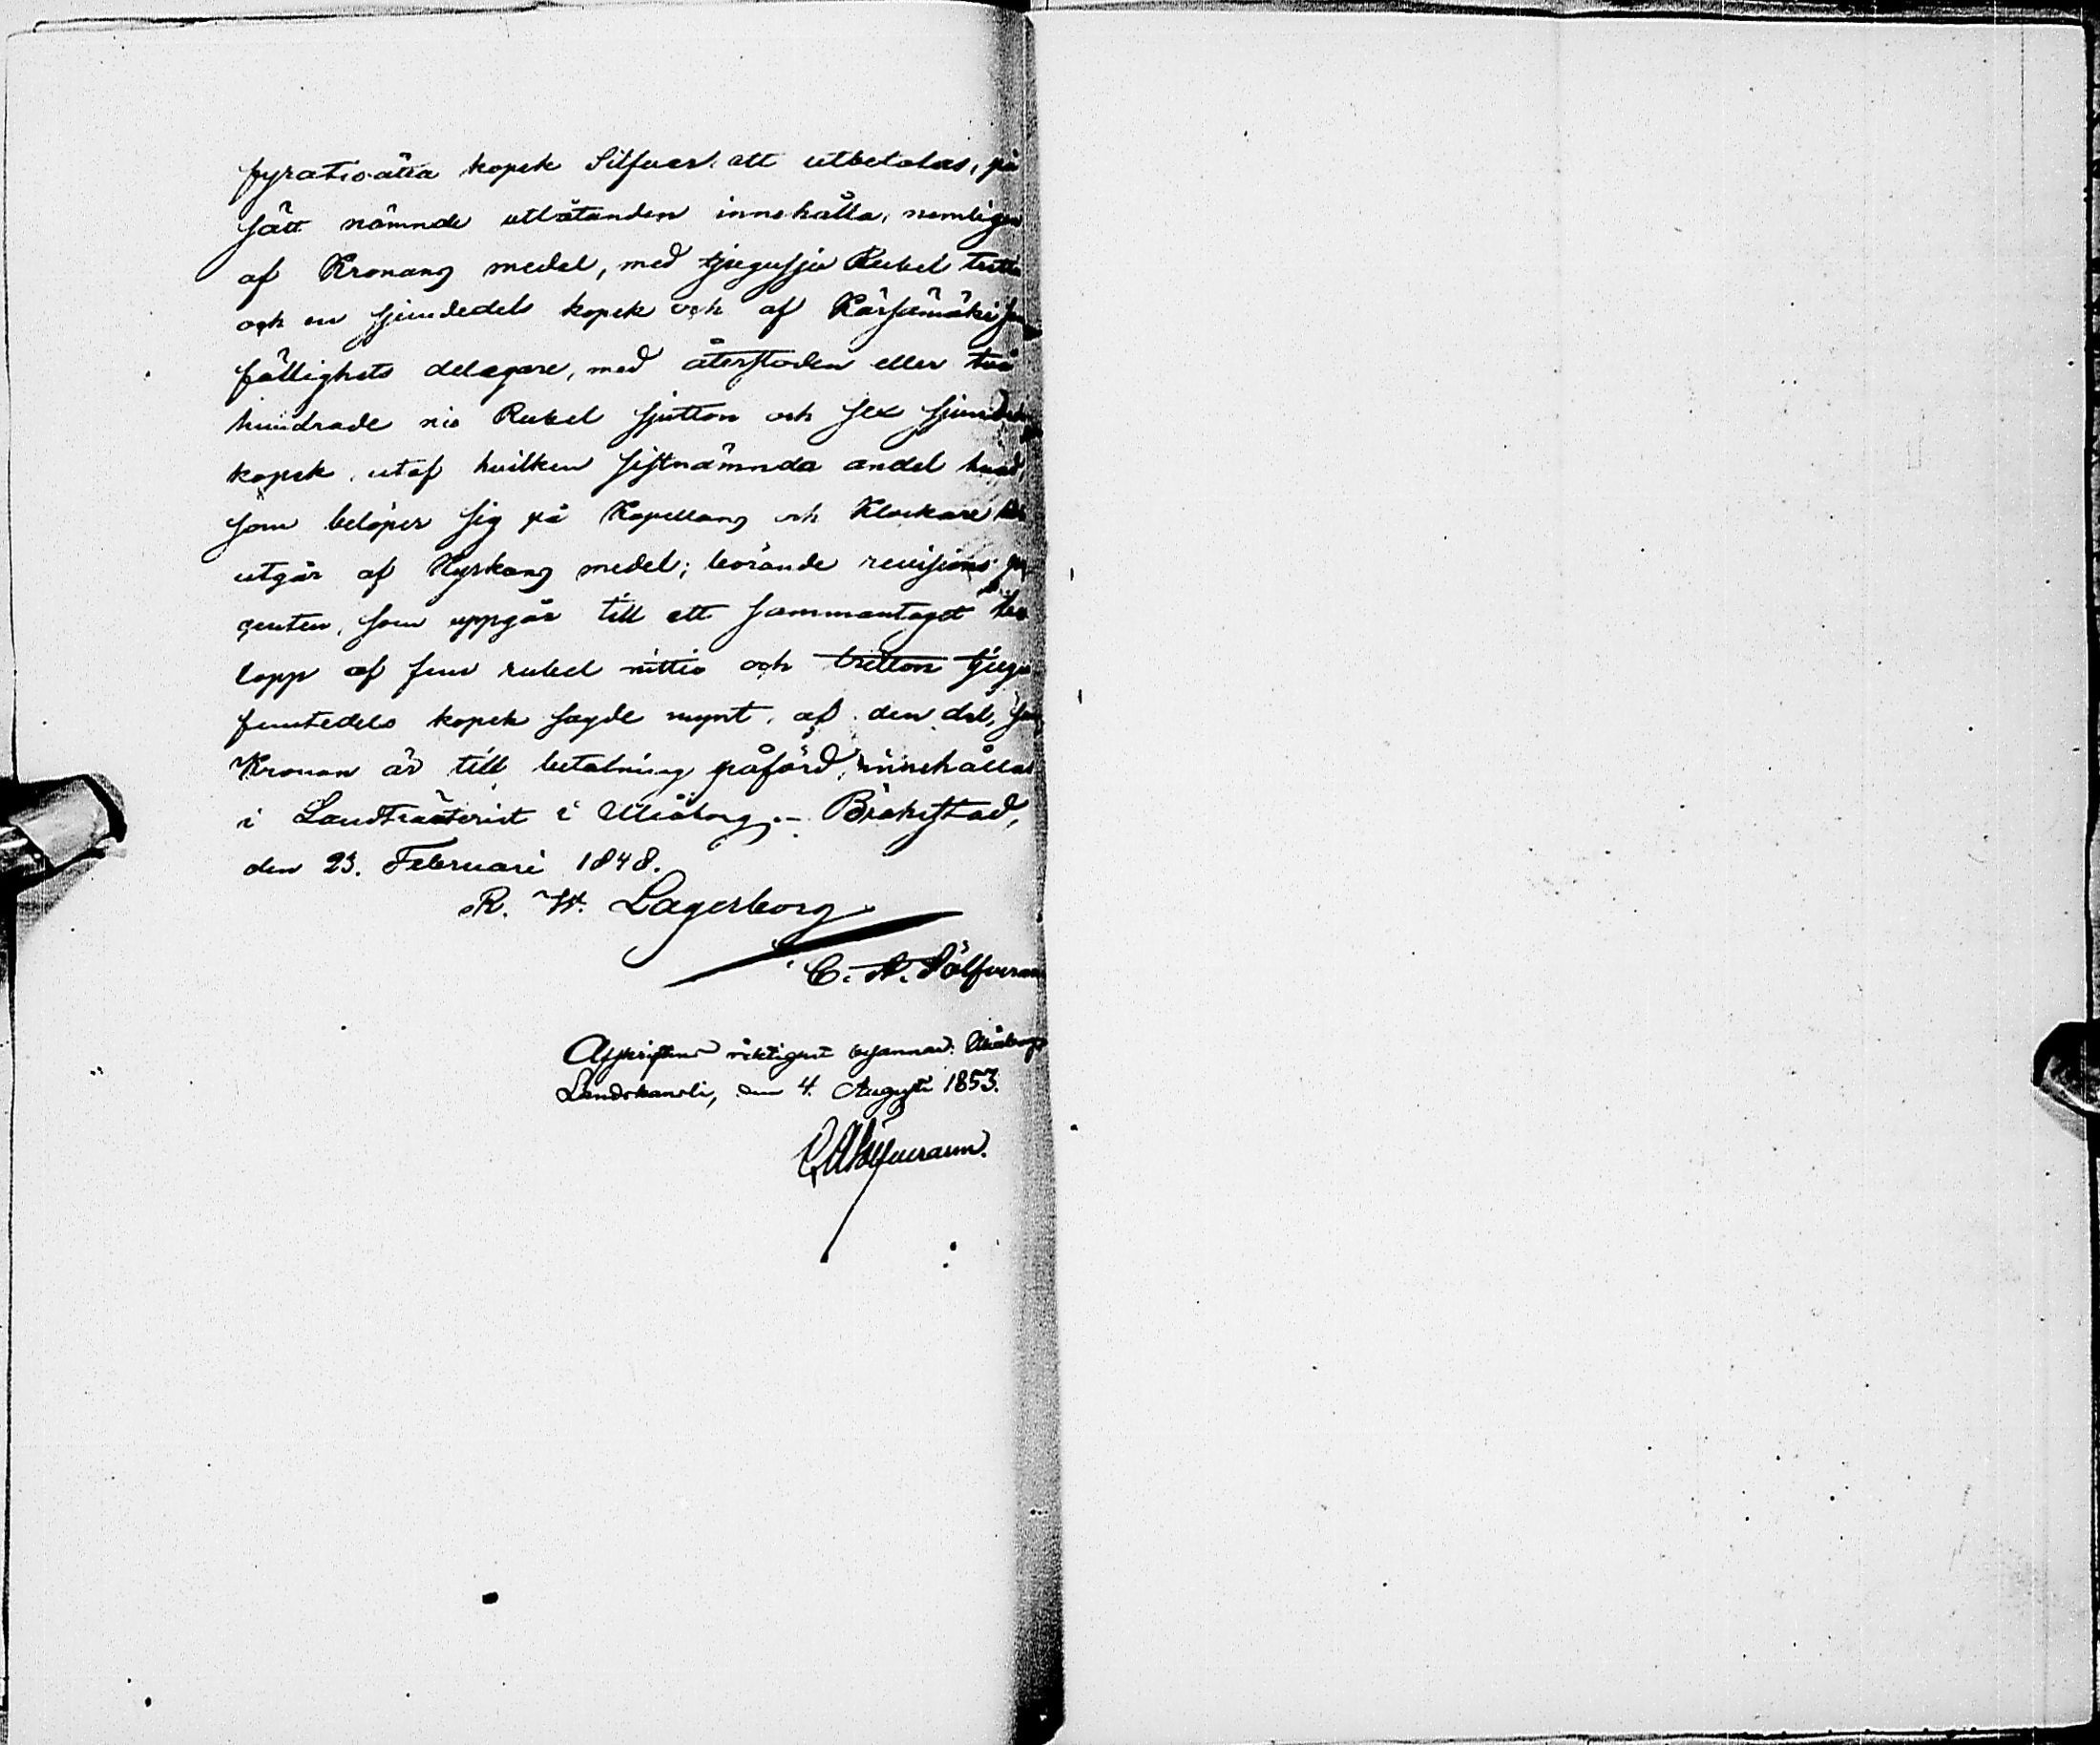 fyratioåtta kopek Silfver att utbetalas, på
sätt nämnde utlåtanden innehålla, nemligen
af Kronans medel, med tjugusju Rubel trettio
och en sjundedels kopek och af Kärsämäki sam
fällighets delägare, med återstoden eller två
hundrade nio Rubel sjutton och sex sjundedels
kopek, utaf hvilken sistnämnda andel hvad,
som belöper sig på Kapellans och Klockare
utgår af Kyrkans medel; börande revisions pro
centen, som uppgår till ett sammantaget be
lopp af fem rubel nittio och tretton tjugu
femtedels kopek sagde mynt, af den del, som
Kronan är till betalning påförd, innehållas
i Landtränteriet i Uleåborg. Brahestad,
den 23. Februari 1848.
R. W. Lagerborg
C. A. Sölfverarm
Afskriftens riktighet besannar: Uleåborgs
Landskansli, den 4. Augusti 1853.
C A Sölfverarm.